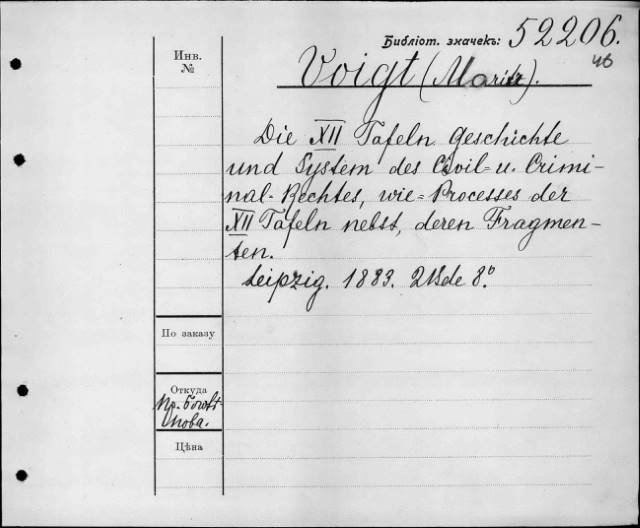 Библіот. значекъ: 52206.
Инв.
№
Voigt (Moritz).
Die XII Tafeln Geschichte
und System des Civil- u. Crimi-
nal-Rechtes, wie-Processes der
XII Tafeln nebst, deren Fragmen-
ten.
Leipzig. 1883. 2 Bde 8.º
По заказу
Откуда
Пр.
нова.
Цѣна